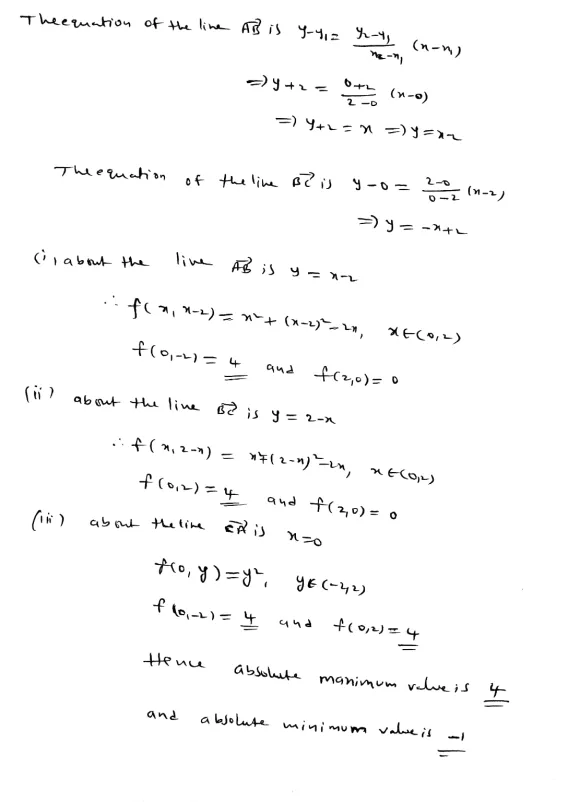 The equation of the line AB is y-y₁ = y₂-y₁/x₂-x₁ (x-x₁)
⇒ y+2 = 0+2/2-0 (x-0)
⇒ y+2 = x ⇒ y = x-2
The equation of the line BC is y-0 = 2-0/0-2 (x-2)
⇒ y = -x+2
(i) about the line AB is y = x-2
∴ f(x, x-2) = x²+(x-2)²-2x, x∈(0,2)
f(0,-2) = 4 and f(2,0) = 0
(ii) about the line BC is y = 2-x
∴ f(x, 2-x) = x²+(2-x)²-2x, x∈(0,2)
f(0,2) = 4 and f(2,0) = 0
(iii) about the line CA is x=0
f(0,y) = y², y∈(-2,2)
f(0,-2) = 4 and f(0,2) = 4
Hence absolute maximum value is 4
and absolute minimum value is -1